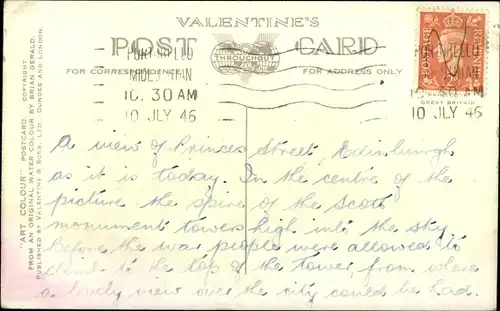 VALENTINE'S
POST CARD
THROUGHOUT
FOR CORRESPONDENCE
FOR ADDRESS ONLY
PORTOBELLO
MIDLOTHIAN
10.30 AM
10 JLY 46
POSTAGE REVENUE
PORTOBELLO
10 JLY 46
PRINTED IN
GREAT BRITAIN
"ART COLOUR" POSTCARD. COPYRIGHT.
FROM AN ORIGINAL WATER COLOUR BY BRIAN GERALD.
PUBLISHED BY VALENTINE & SONS, LTD., DUNDEE AND LONDON.
A view of Princes Street, Edinburgh
as it is today. In the centre of the
picture the spire of the Scott
monument towers high into the sky
before the war people were allowed to
climb to the top of the tower, from where
a lovely view over the city could be had.